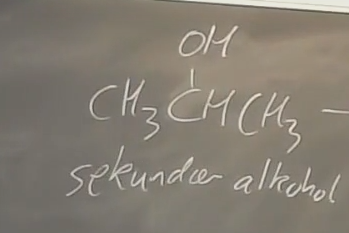 OH
CH3CHCH3 —
sekundær alkohol